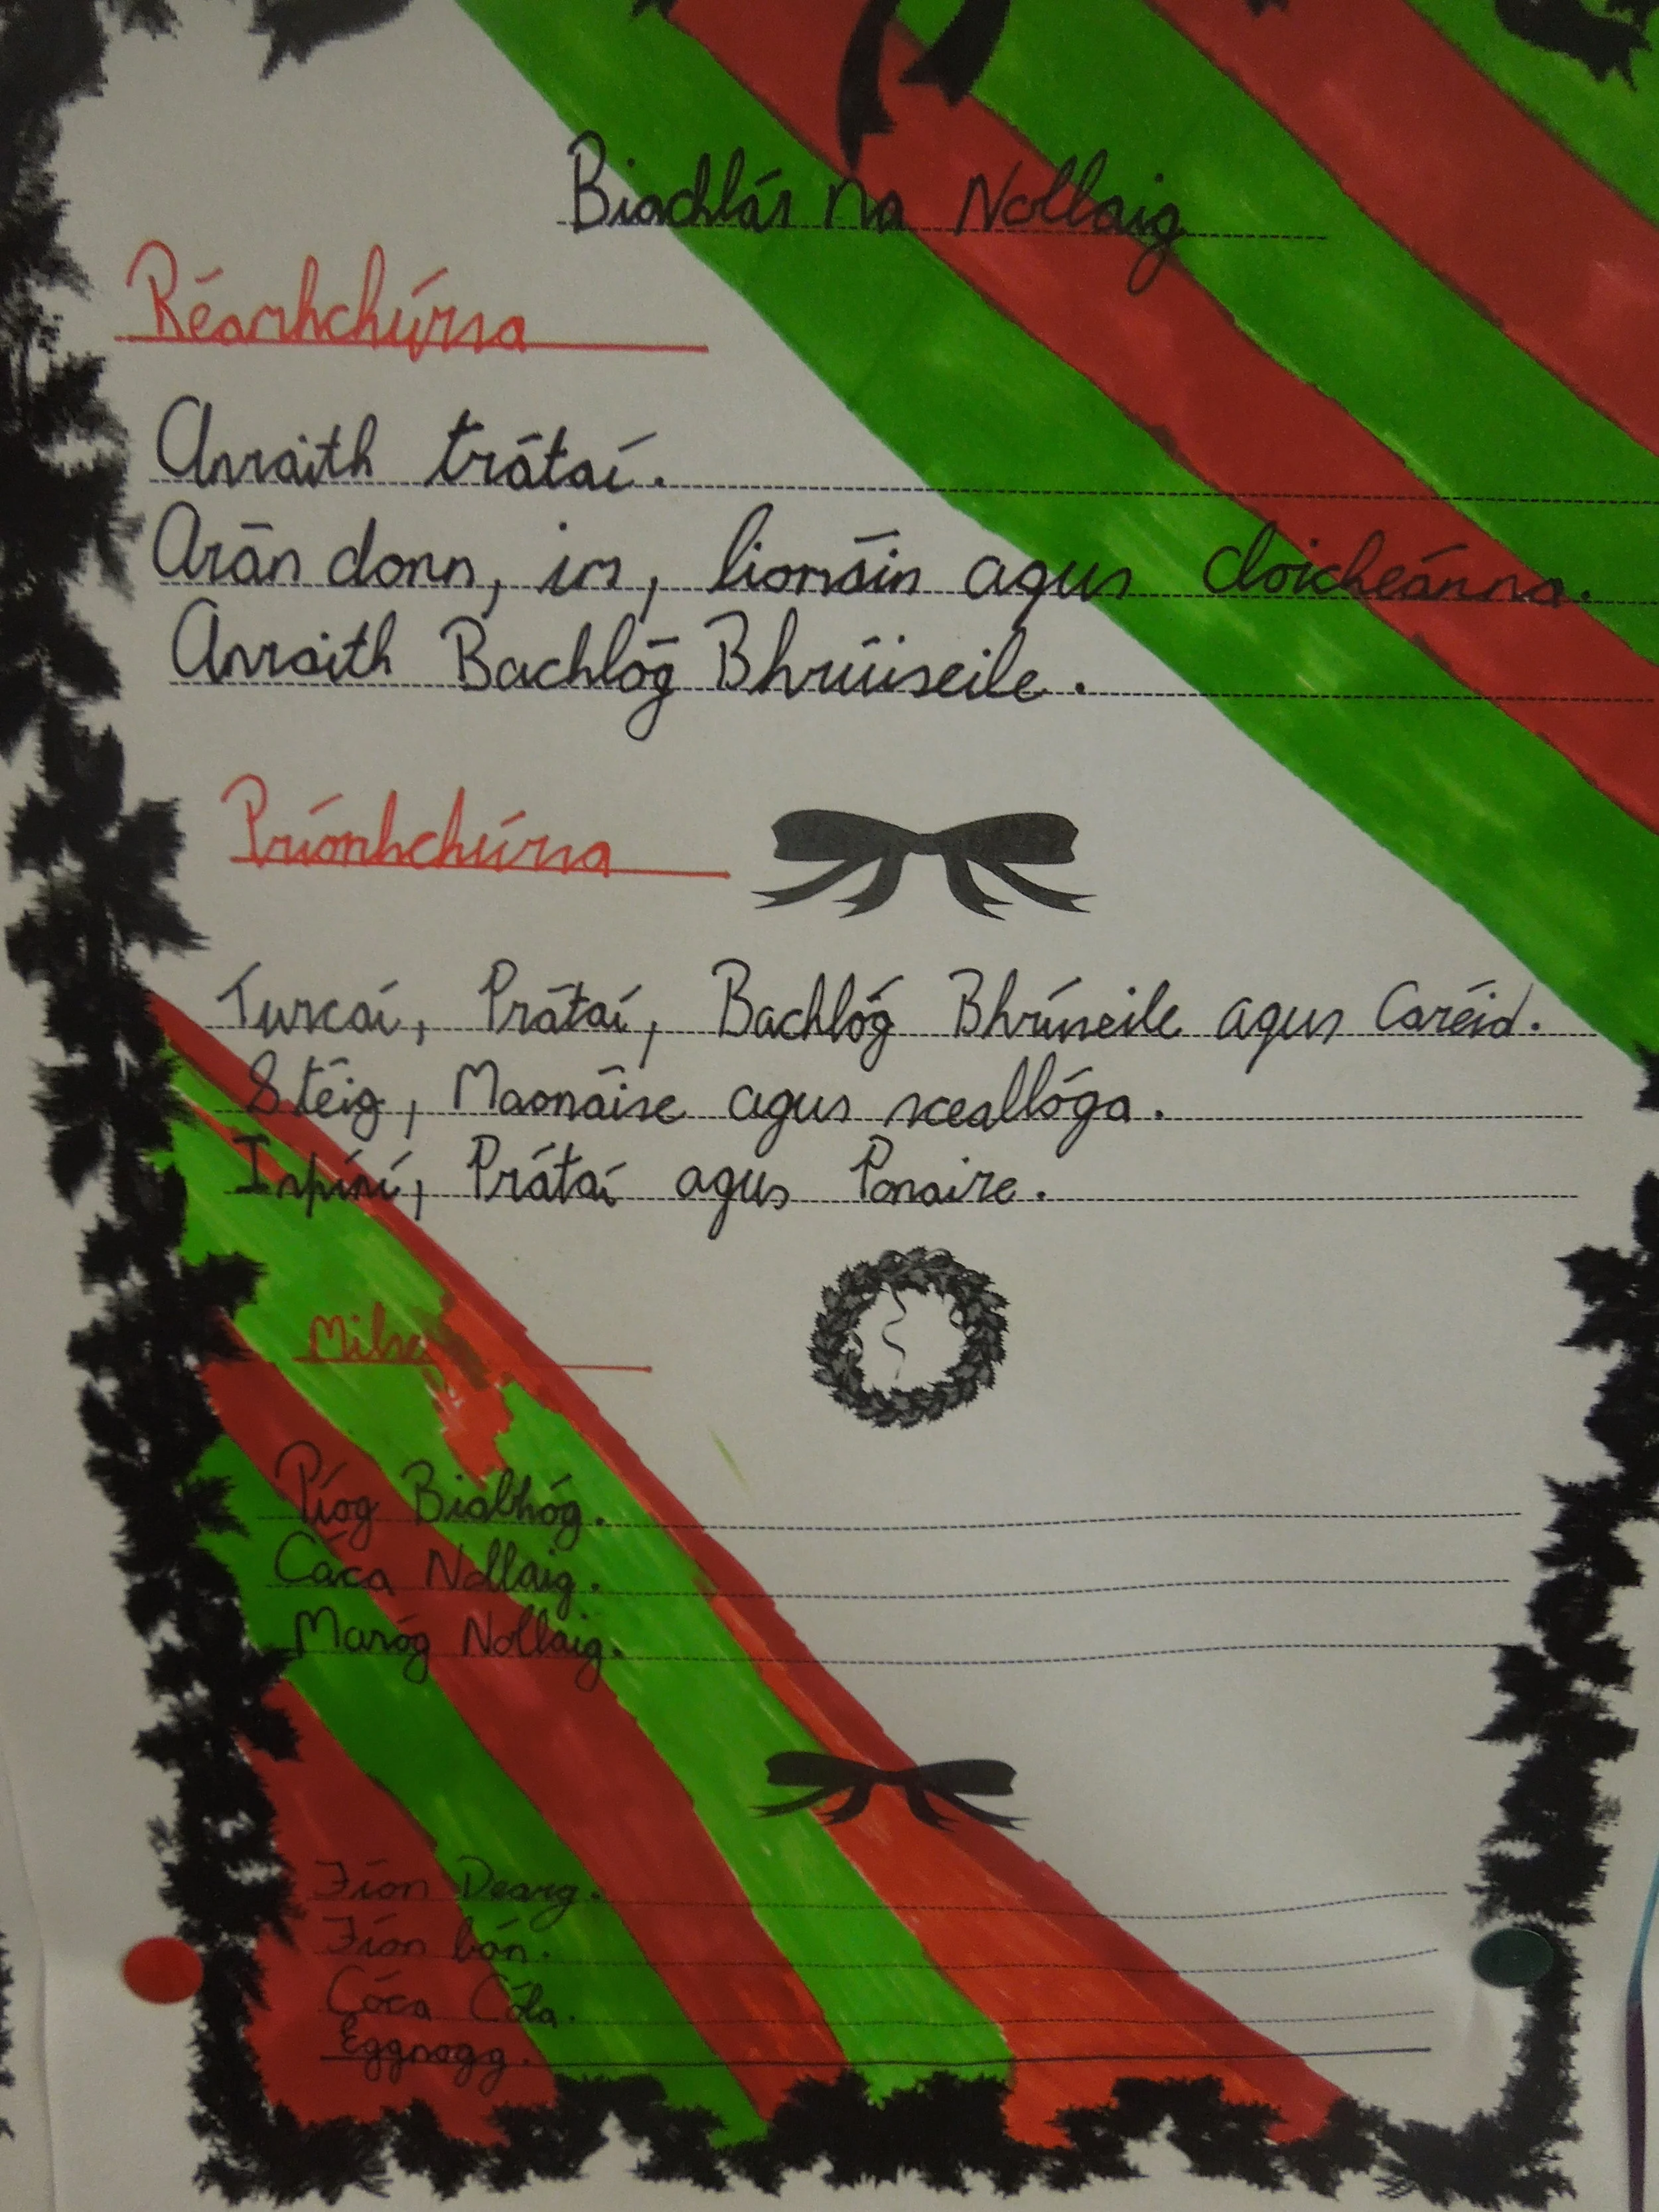 Biachlár na Nollaig
Réamhchúrsa
Anraith trátaí.
Arán donn, im, liomóin agus cloicheánna.
Anraith Bachlóg Bhrúiseile.
Príomhchúrsa
Turcaí, Prátaí, Bachlóg Bhrúseile agus Caréid.
Stéig, Maonáise agus sceallóga.
Ispíní, Prátaí agus Ponaire.
Píog Biabhóg.
Cáca Nollaig.
Maróg Nollaig.
Fíon Dearg.
Fíon bán.
Cóca Cóla.
Eggnogg.